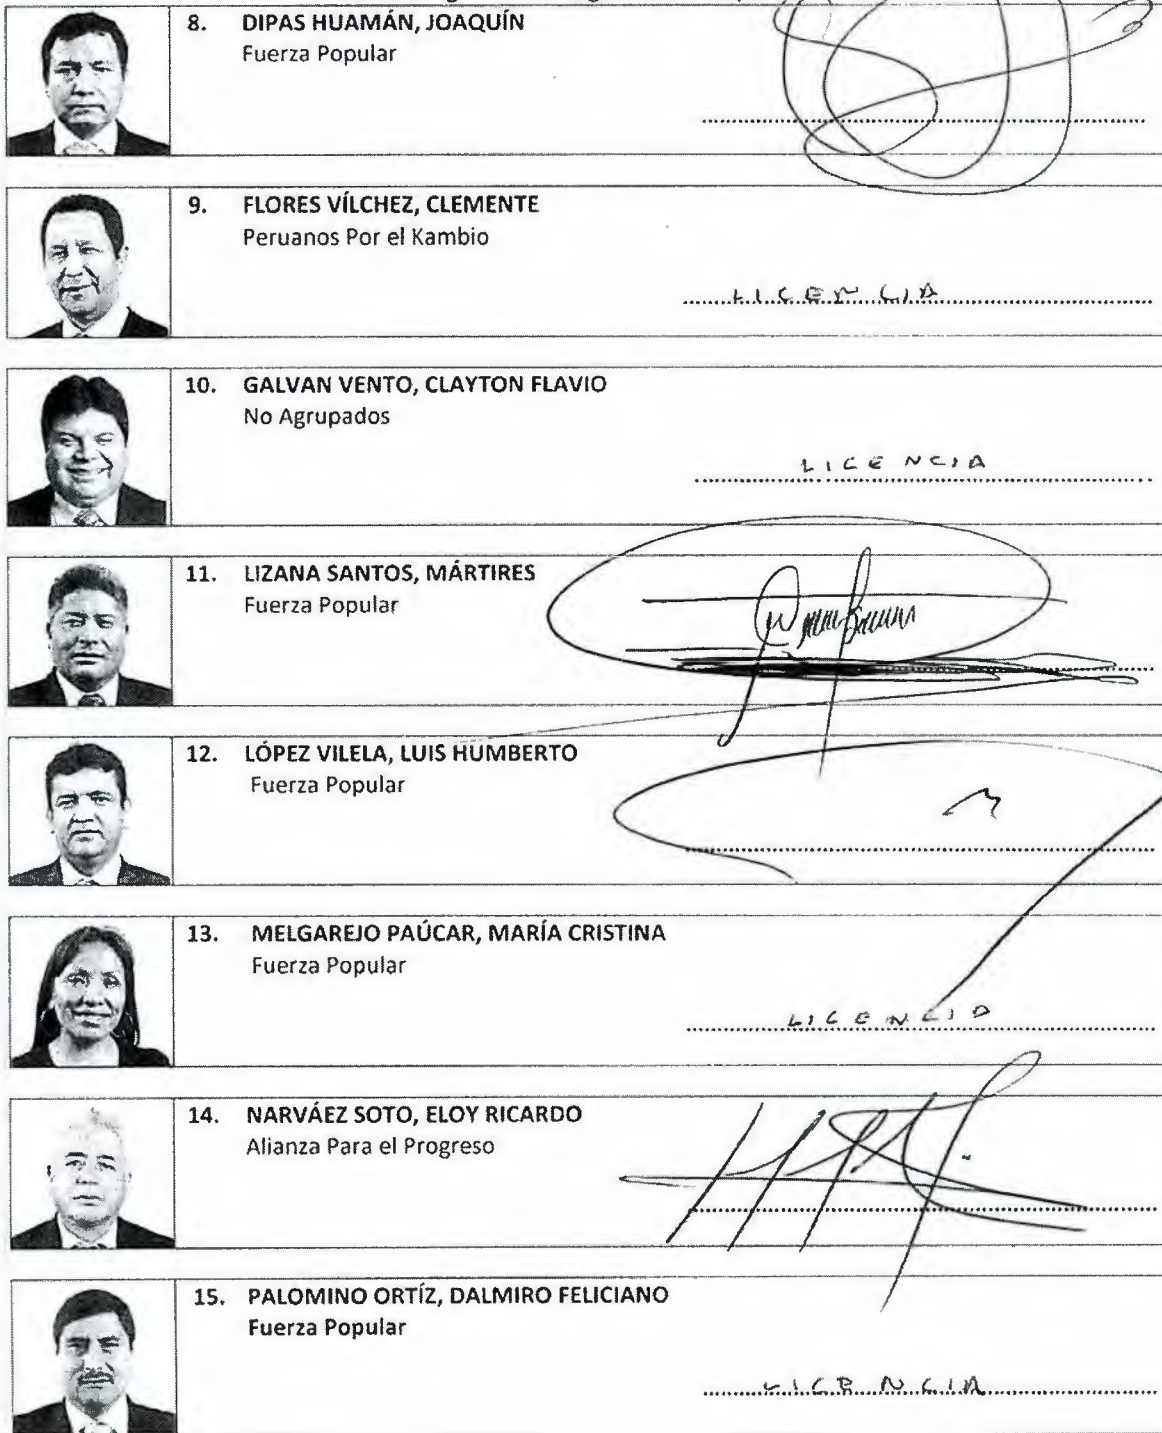 8. DIPAS HUAMÁN, JOAQUÍN
Fuerza Popular
9. FLORES VÍLCHEZ, CLEMENTE
Peruanos Por el Kambio
LICENCIA
10. GALVAN VENTO, CLAYTON FLAVIO
No Agrupados
LICENCIA
11. LIZANA SANTOS, MÁRTIRES
Fuerza Popular
12. LÓPEZ VILELA, LUIS HUMBERTO
Fuerza Popular
13. MELGAREJO PAÚCAR, MARÍA CRISTINA
Fuerza Popular
LICENCIA
14. NARVÁEZ SOTO, ELOY RICARDO
Alianza Para el Progreso
15. PALOMINO ORTÍZ, DALMIRO FELICIANO
Fuerza Popular
LICENCIA